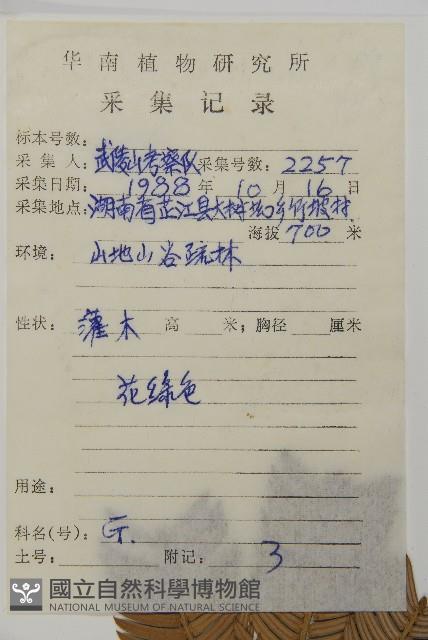 华南植物研究所
采集记录
标本号数:
采集人: 武陵山考察队 采集号数: 2257
采集日期: 1988年10月16日
采集地点: 湖南省芷江县大树坳乡竹坡村
海拔 700 米
环境: 山地山谷疏林
性状: 灌木 高 米; 胸径 厘米
花绿色
用途:
科名(号): G.
土号: 附记: 3
國立自然科學博物館
NATIONAL MUSEUM OF NATURAL SCIENCE